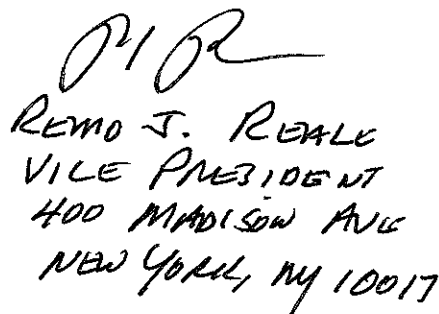 Remo J. Reale
Vice President
400 Madison Ave
New York, NY 10017